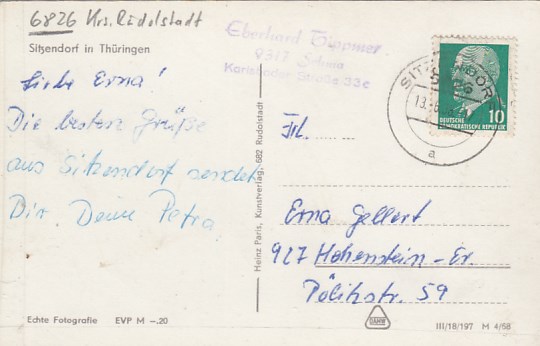 6826 Krs. Rudolstadt
Sitzendorf in Thüringen
Liebe Erna!
Die besten Grüße
aus Sitzendorf sendet
Dir Deine Petra
Echte Fotografie EVP M –.20
Heinz Paris, Kunstverlag, 682 Rudolstadt
Eberhard Tippmer
9317
Karlsbader Straße 33c
SITZENDORF
a
10
DEUTSCHE
DEMOKRATISCHE REPUBLIK
Frl.
Erna Gellert
927 Hohenstein-Er.
Pölitzstr. 59
III/18/197 M 4/58